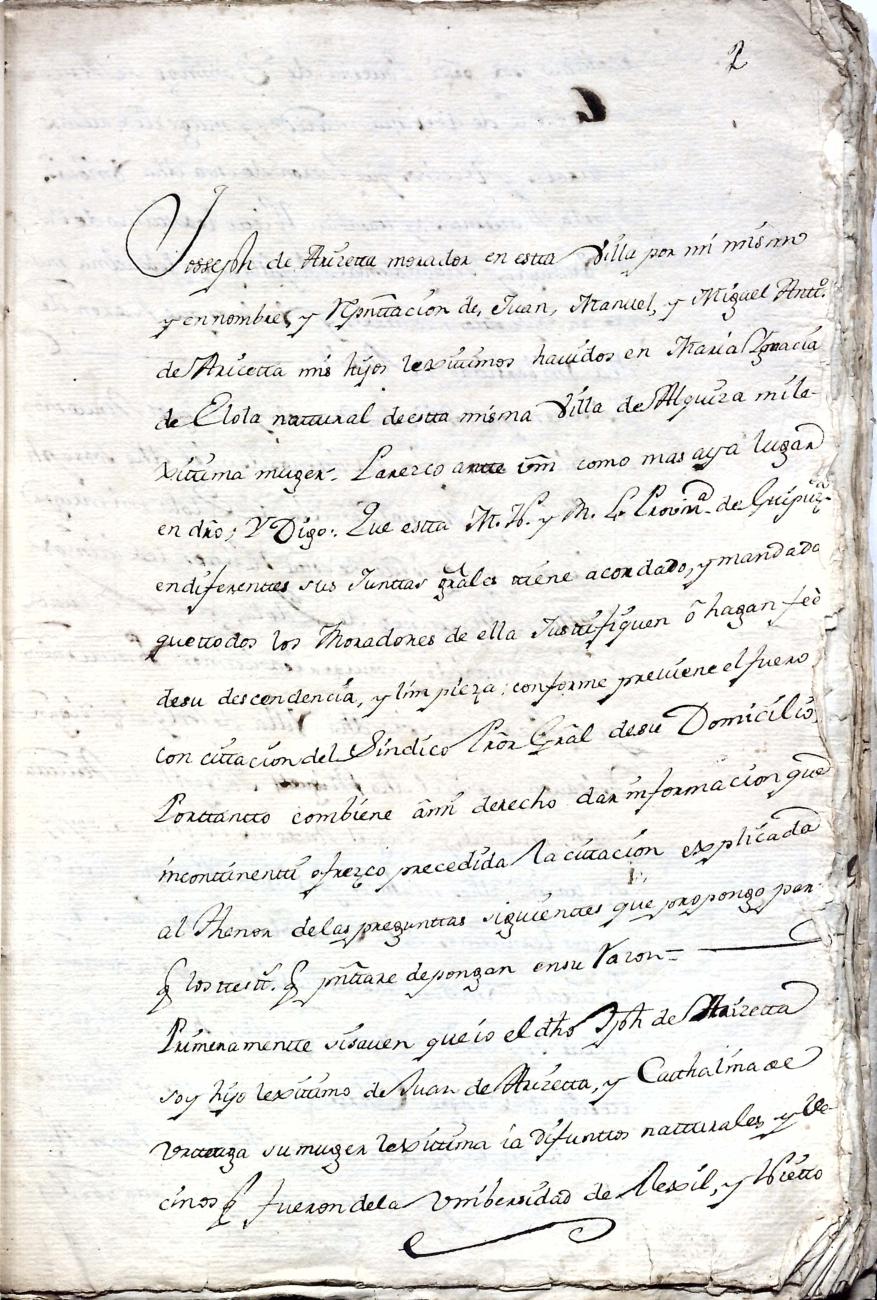 2
Josseph de Arizetta morador en estta Villa por mi mismo
y en nombre, y Rpñttacion de, Juan, Manuel, y Miguel Antto.
de Aricetta mis hijos lexittimos havidos en Maria Ygnacia
de Elola natural de estta misma Villa de Alquiza mi le-
xittima muger. Parezco antte vm̃ como mas aya lugar
en dr̃o; Y Digo: Que estta M. N. y M. L. Provinª. de Guipuzª
en diferenttes sus Junttas gr̃ales ttiene acordado, y mandado
que ttodos los Moradores de ella Justtifiquen ô hagan feè
de su descendencia, y limpieza; conforme previene el fuero
con cittacion del Sindico Pr̃or Gr̃al de su Domicilio,
Porttantto combiene âmi derecho dar informacion que
incontinentti ofrezco precedida la cittacion explicada
al Thenor de las pregunttas siguienttes que propongo par
q̃ los ttestt. q̃ pñttare depongan en su razon=
Primeramentte si saven que io el dh̃o Jph de Arizetta
soy hijo lexittimo de Juan de Arizetta, y Catthalina de
Urtteaga su muger lexittima ia difunttos natturales y Ve-
cinos q̃ fueron de la Vnibersidad de Rexil, y Nietto